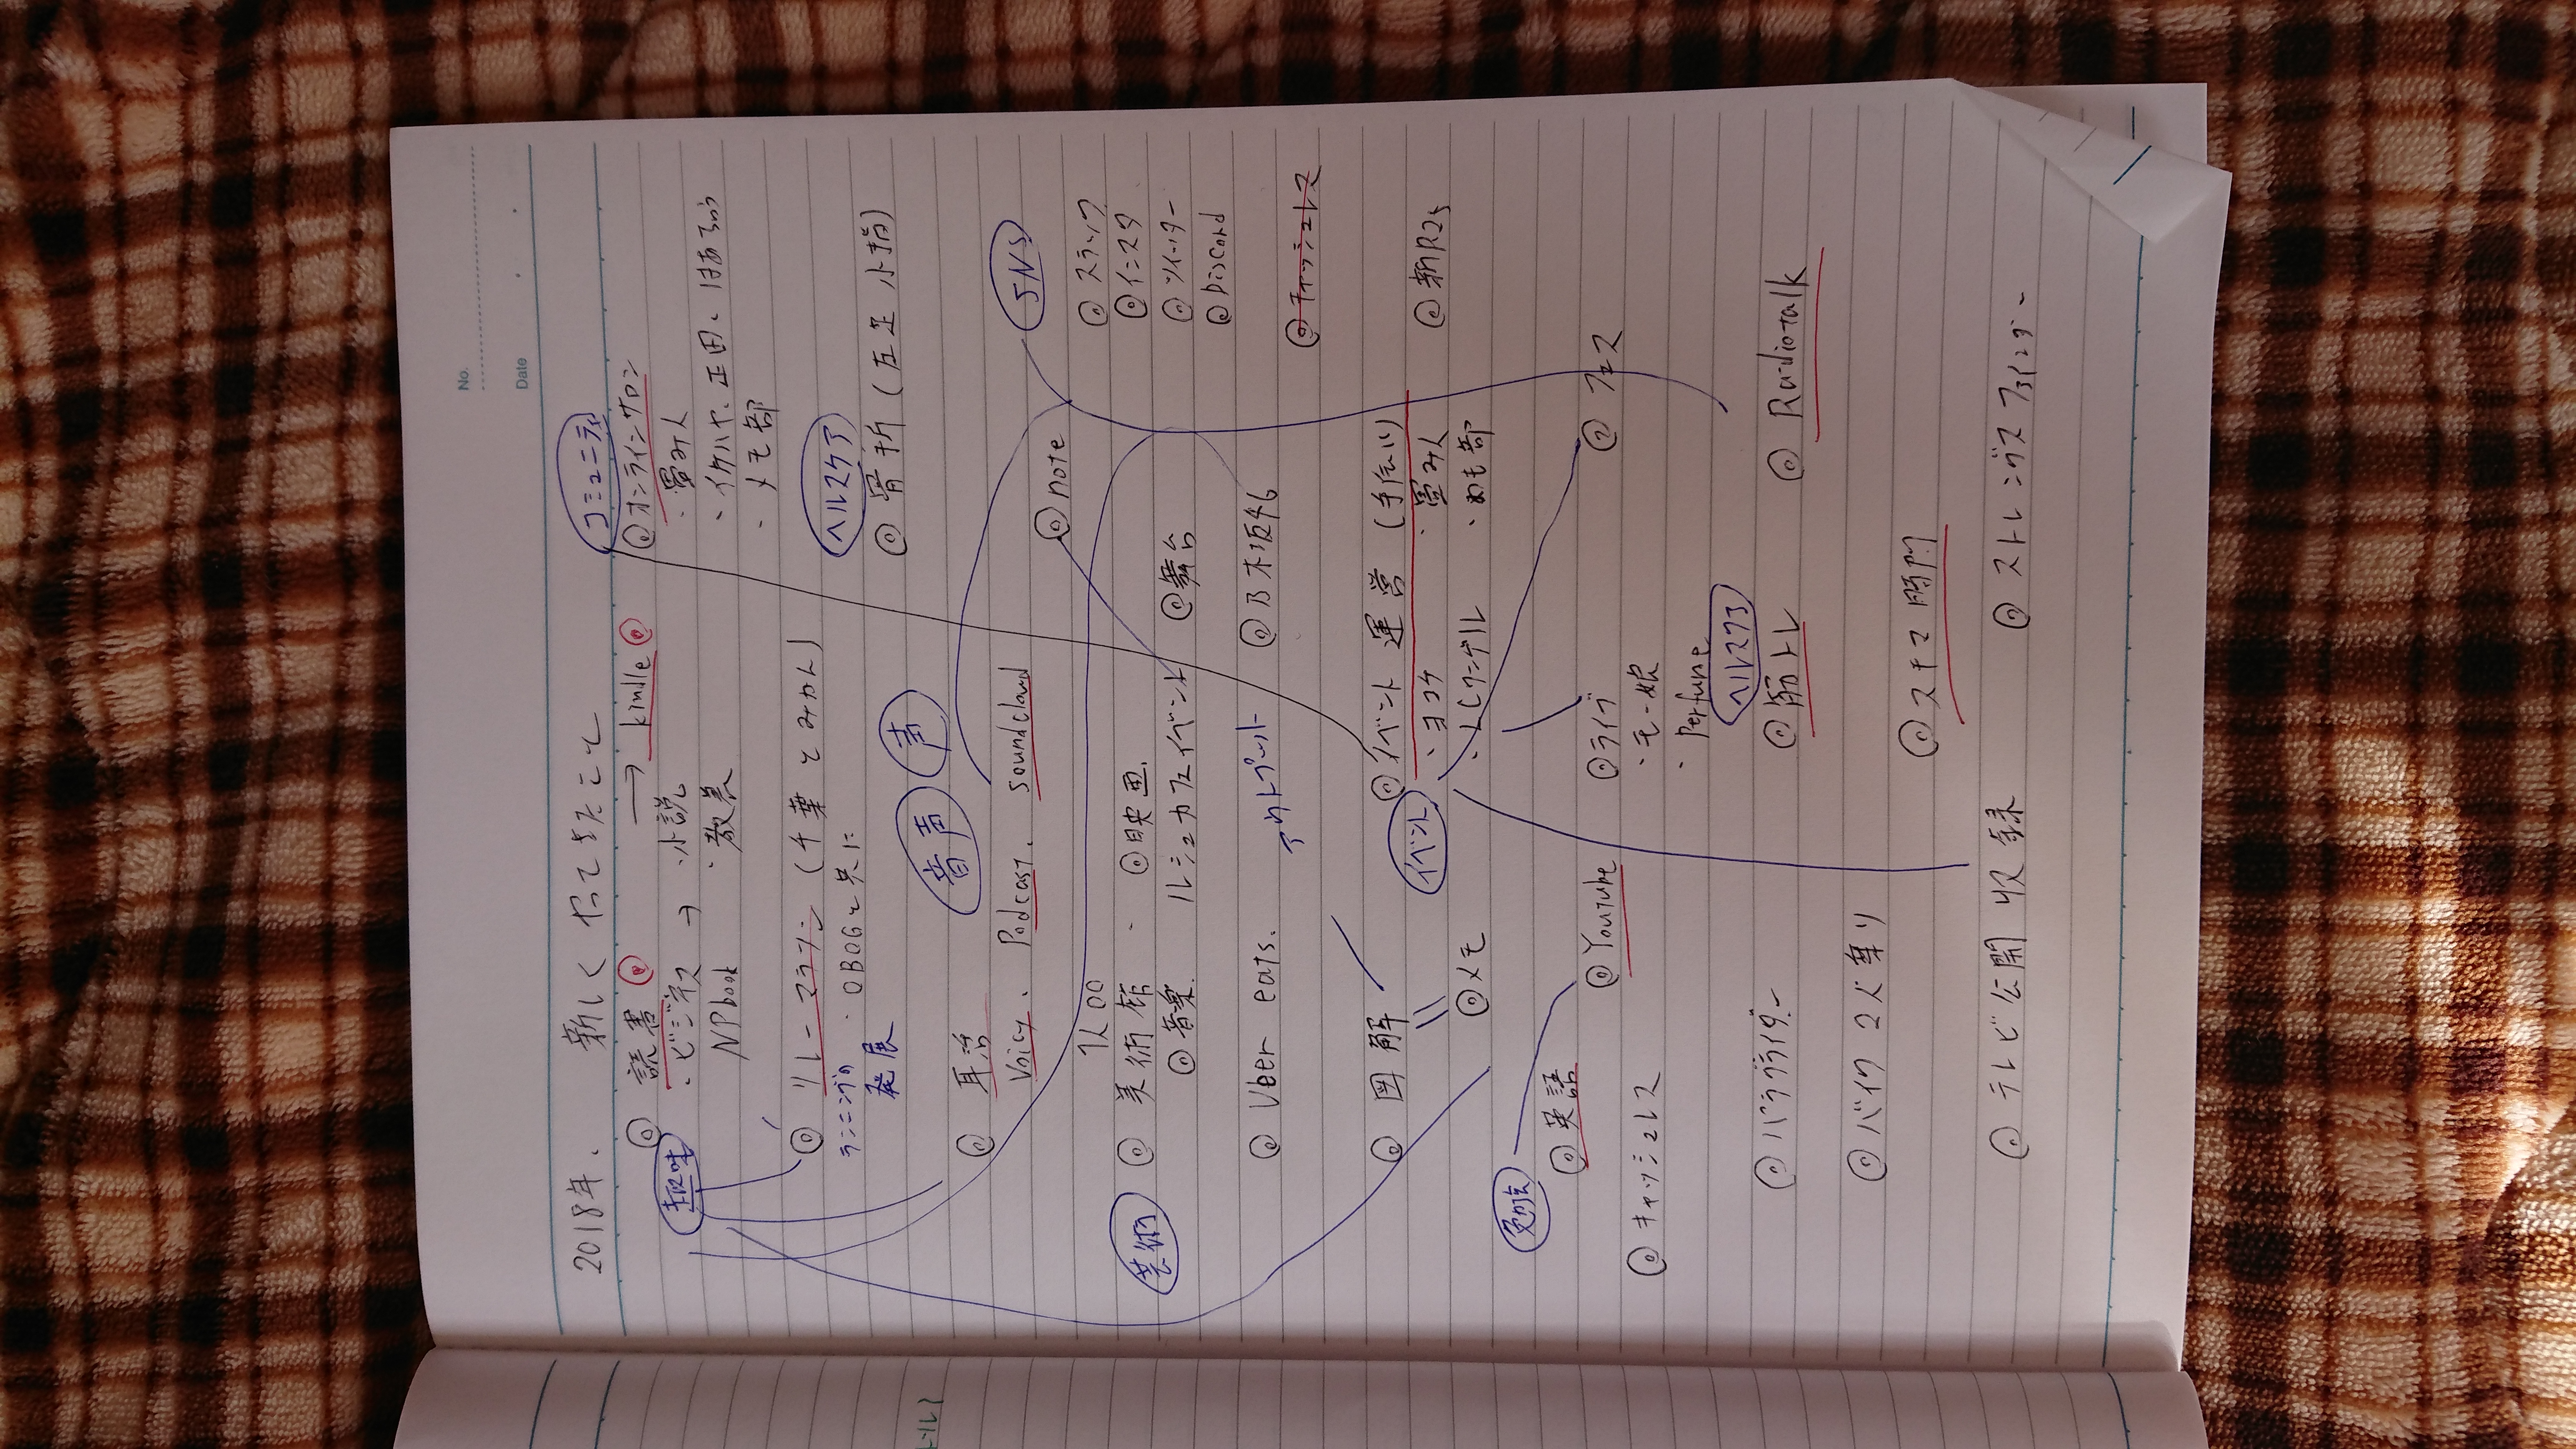 No.
Date
2018年、新しくやってきたこと
コミュニティ
◎ 読書 → kindle
◎ オンラインサロン
・ビジネス → ・小説
・畳み人
NPbook ・教養
・イケハヤ、正田、はあちゅう
・メモ部
趣味
◎ リレーマラソン (千葉とみかん)
ランニングの発展 ・OBOGと共に
ヘルスケア
◎ 骨折 (左足小指)
音声 声
◎ 耳活
Voicy、Podcast、soundcloud
SNS
◎ note
◎ スラック
◎ インスタ
◎ ツイッター
◎ Discord
芸術
◎ 美術館 ◎映画
◎音楽 ルミュカフェイベント ◎舞台
◎ Uber eats. アウトプット ◎乃木坂46
◎ キャッシュレス
◎ 図解
◎メモ
イベント
◎イベント運営 (手伝い)
・ヨコク ・畳み人
・めも部
◎新R25
◎ フェス
◎ライブ
・モー娘
・Perfume
◎英語
◎ Youtube
◎ キャッシュレス
ヘルスケア
◎筋トレ
◎ Radiotalk
◎ パラグライダー
◎ バイク2人乗り
◎ スキマ時間
◎ テレビ公開収録
◎ ストレングスファインダー